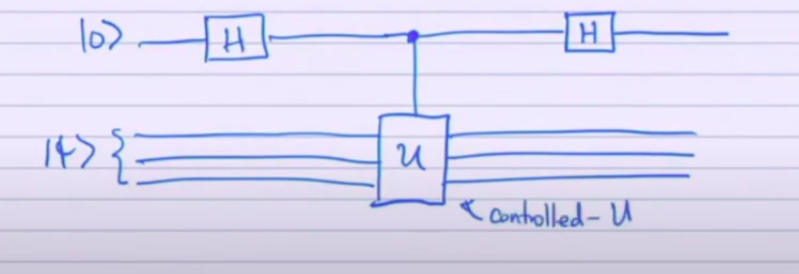 |0⟩ H H
|ψ⟩ { U
controlled-U